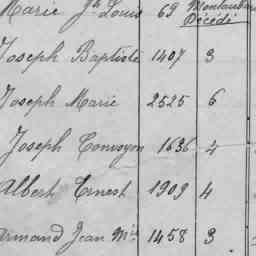 Marie Jn Louis 69 Montauban
Décédé
Joseph Baptiste 1407 3
Joseph Marie 2525 6
Joseph Convoyon 1636 4
Albert Ernest 1909 4
Armand Jean Mie 1458 3